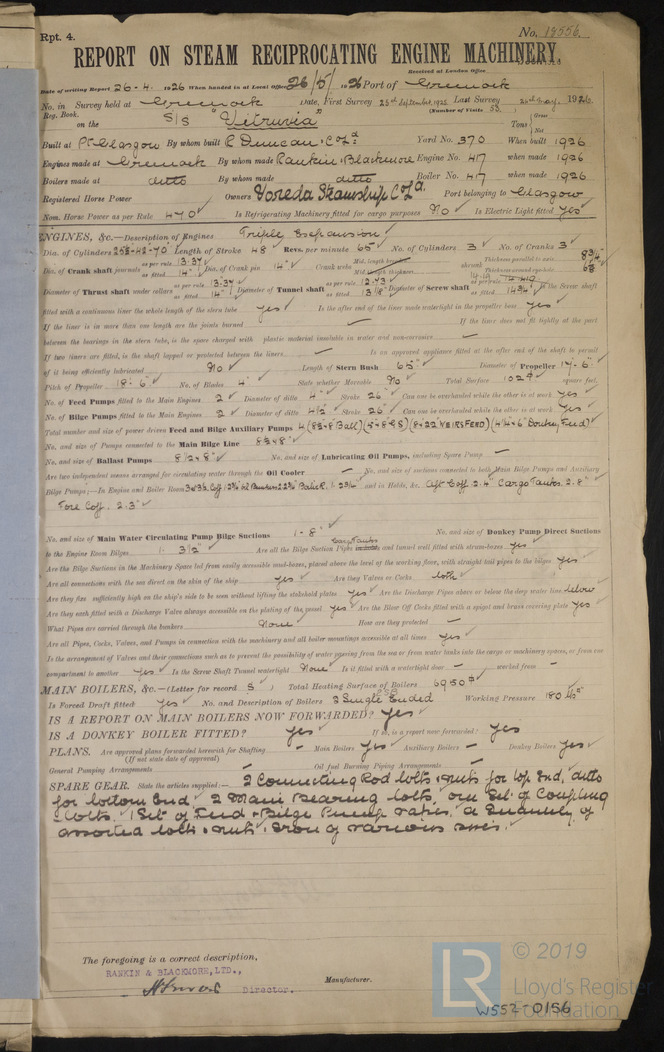 Rpt. 4.
No. 18556.
REPORT ON STEAM RECIPROCATING ENGINE MACHINERY.
Received at London Office
Date of writing Report 26-4. 1926 When handed in at Local Office 26/5/1926 Port of Greenock
No. in Survey held at Greenock Date, First Survey 25th September, 1925 Last Survey 25th May, 1926
Reg. Book. (Number of Visits 53.)
on the S/S "Vitruvia" Tons { Gross Net
Built at Pt Glasgow By whom built R Duncan & Co Ld. Yard No. 370 When built 1926
Engines made at Greenock By whom made Rankin & Blackmore Engine No. 417 when made 1926
Boilers made at ditto By whom made ditto Boiler No. 417 when made 1926
Registered Horse Power Owners Voreda Steamship Co Ld. Port belonging to Glasgow
Nom. Horse Power as per Rule 470 Is Refrigerating Machinery fitted for cargo purposes No Is Electric Light fitted Yes
ENGINES, &c.—Description of Engines Triple Expansion
Dia. of Cylinders 25¾-42-70" Length of Stroke 48 Revs. per minute 65 No. of Cylinders 3 No. of Cranks 3
Dia. of Crank shaft journals as per rule 13.37 as fitted 14" Dia. of Crank pin 14" Crank webs Mid. length breadth Mid. length thickness shrunk Thickness parallel to axis 8¾" Thickness around eye-hole
Diameter of Thrust shaft under collars as per rule 13.37 as fitted 14" Diameter of Tunnel shaft as per rule 12.73 as fitted Diameter of Screw shaft as per rule as fitted 14¾" Is the Screw shaft
fitted with a continuous liner the whole length of the stern tube yes Is the after end of the liner made watertight in the propeller boss yes
If the liner is in more than one length are the joints burned — If the liner does not fit tightly at the part
between the bearings in the stern tube, is the space charged with plastic material insoluble in water and non-corrosive —
If two liners are fitted, is the shaft lapped or protected between the liners — Is an approved appliance fitted at the after end of the shaft to permit
of it being efficiently lubricated No Length of Stern Bush 65" Diameter of Propeller 17'-6"
Pitch of Propeller 18'-6" No. of Blades 4 State whether Moveable No Total Surface 102 square feet.
No. of Feed Pumps fitted to the Main Engines 2 Diameter of ditto 4" Stroke 26" Can one be overhauled while the other is at work Yes
No. of Bilge Pumps fitted to the Main Engines 2 Diameter of ditto 4½" Stroke 26" Can one be overhauled while the other is at work Yes
Total number and size of power driven Feed and Bilge Auxiliary Pumps
No. and size of Pumps connected to the Main Bilge Line
No. and size of Ballast Pumps 8½×8" No. and size of Lubricating Oil Pumps, including Spare Pump —
Are two independent means arranged for circulating water through the Oil Cooler — No. and size of suctions connected to both Main Bilge Pumps and Auxiliary
Bilge Pumps;—In Engine and Boiler Room and in Holds, &c. Aft Coff. 2.4" Cargo Tanks 2.8"
Fore Coff. 2.3"
No. and size of Main Water Circulating Pump Bilge Suctions 1-8" No. and size of Donkey Pump Direct Suctions
to the Engine Room Bilges 1. 3½" Are all the Bilge Suction Pipes Cargo Tanks and tunnel well fitted with strum-boxes yes
Are the Bilge Suctions in the Machinery Space led from easily accessible mud-boxes, placed above the level of the working floor, with straight tail pipes to the bilges Yes
Are all connections with the sea direct on the skin of the ship yes Are they Valves or Cocks both
Are they fixed sufficiently high on the ship's side to be seen without lifting the stokehold plates yes Are the Discharge Pipes above or below the deep water line below
Are they each fitted with a Discharge Valve always accessible on the plating of the vessel yes Are the Blow Off Cocks fitted with a spigot and brass covering plate yes
What Pipes are carried through the bunkers None How are they protected —
Are all Pipes, Cocks, Valves, and Pumps in connection with the machinery and all boiler mountings accessible at all times yes
Is the arrangement of Valves and their connections such as to prevent the possibility of water passing from the sea or from water tanks into the cargo or machinery spaces, or from one
compartment to another yes Is the Screw Shaft Tunnel watertight None Is it fitted with a watertight door — worked from —
MAIN BOILERS, &c.—(Letter for record S) Total Heating Surface of Boilers 6950
Is Forced Draft fitted yes No. and Description of Boilers 3 Single Ended Working Pressure 180 lbs
IS A REPORT ON MAIN BOILERS NOW FORWARDED? Yes
IS A DONKEY BOILER FITTED? Yes If so, is a report now forwarded? Yes
PLANS. Are approved plans forwarded herewith for Shafting — Main Boilers Yes Auxiliary Boilers — Donkey Boilers Yes
(If not state date of approval)
General Pumping Arrangements — Oil fuel Burning Piping Arrangements —
SPARE GEAR. State the articles supplied:— 2 Connecting Rod bolts & nuts for top End, ditto
for bottom End, 2 Main Bearing bolts, one Set of Coupling
bolts. 1 Set of Feed & Bilge Pump valves, a Quantity of
assorted bolts & nuts, Iron of various sizes.
The foregoing is a correct description,
RANKIN & BLACKMORE, LTD.,
Director. Manufacturer.
LR
© 2019
Lloyd's Register
Foundation
W557-0156